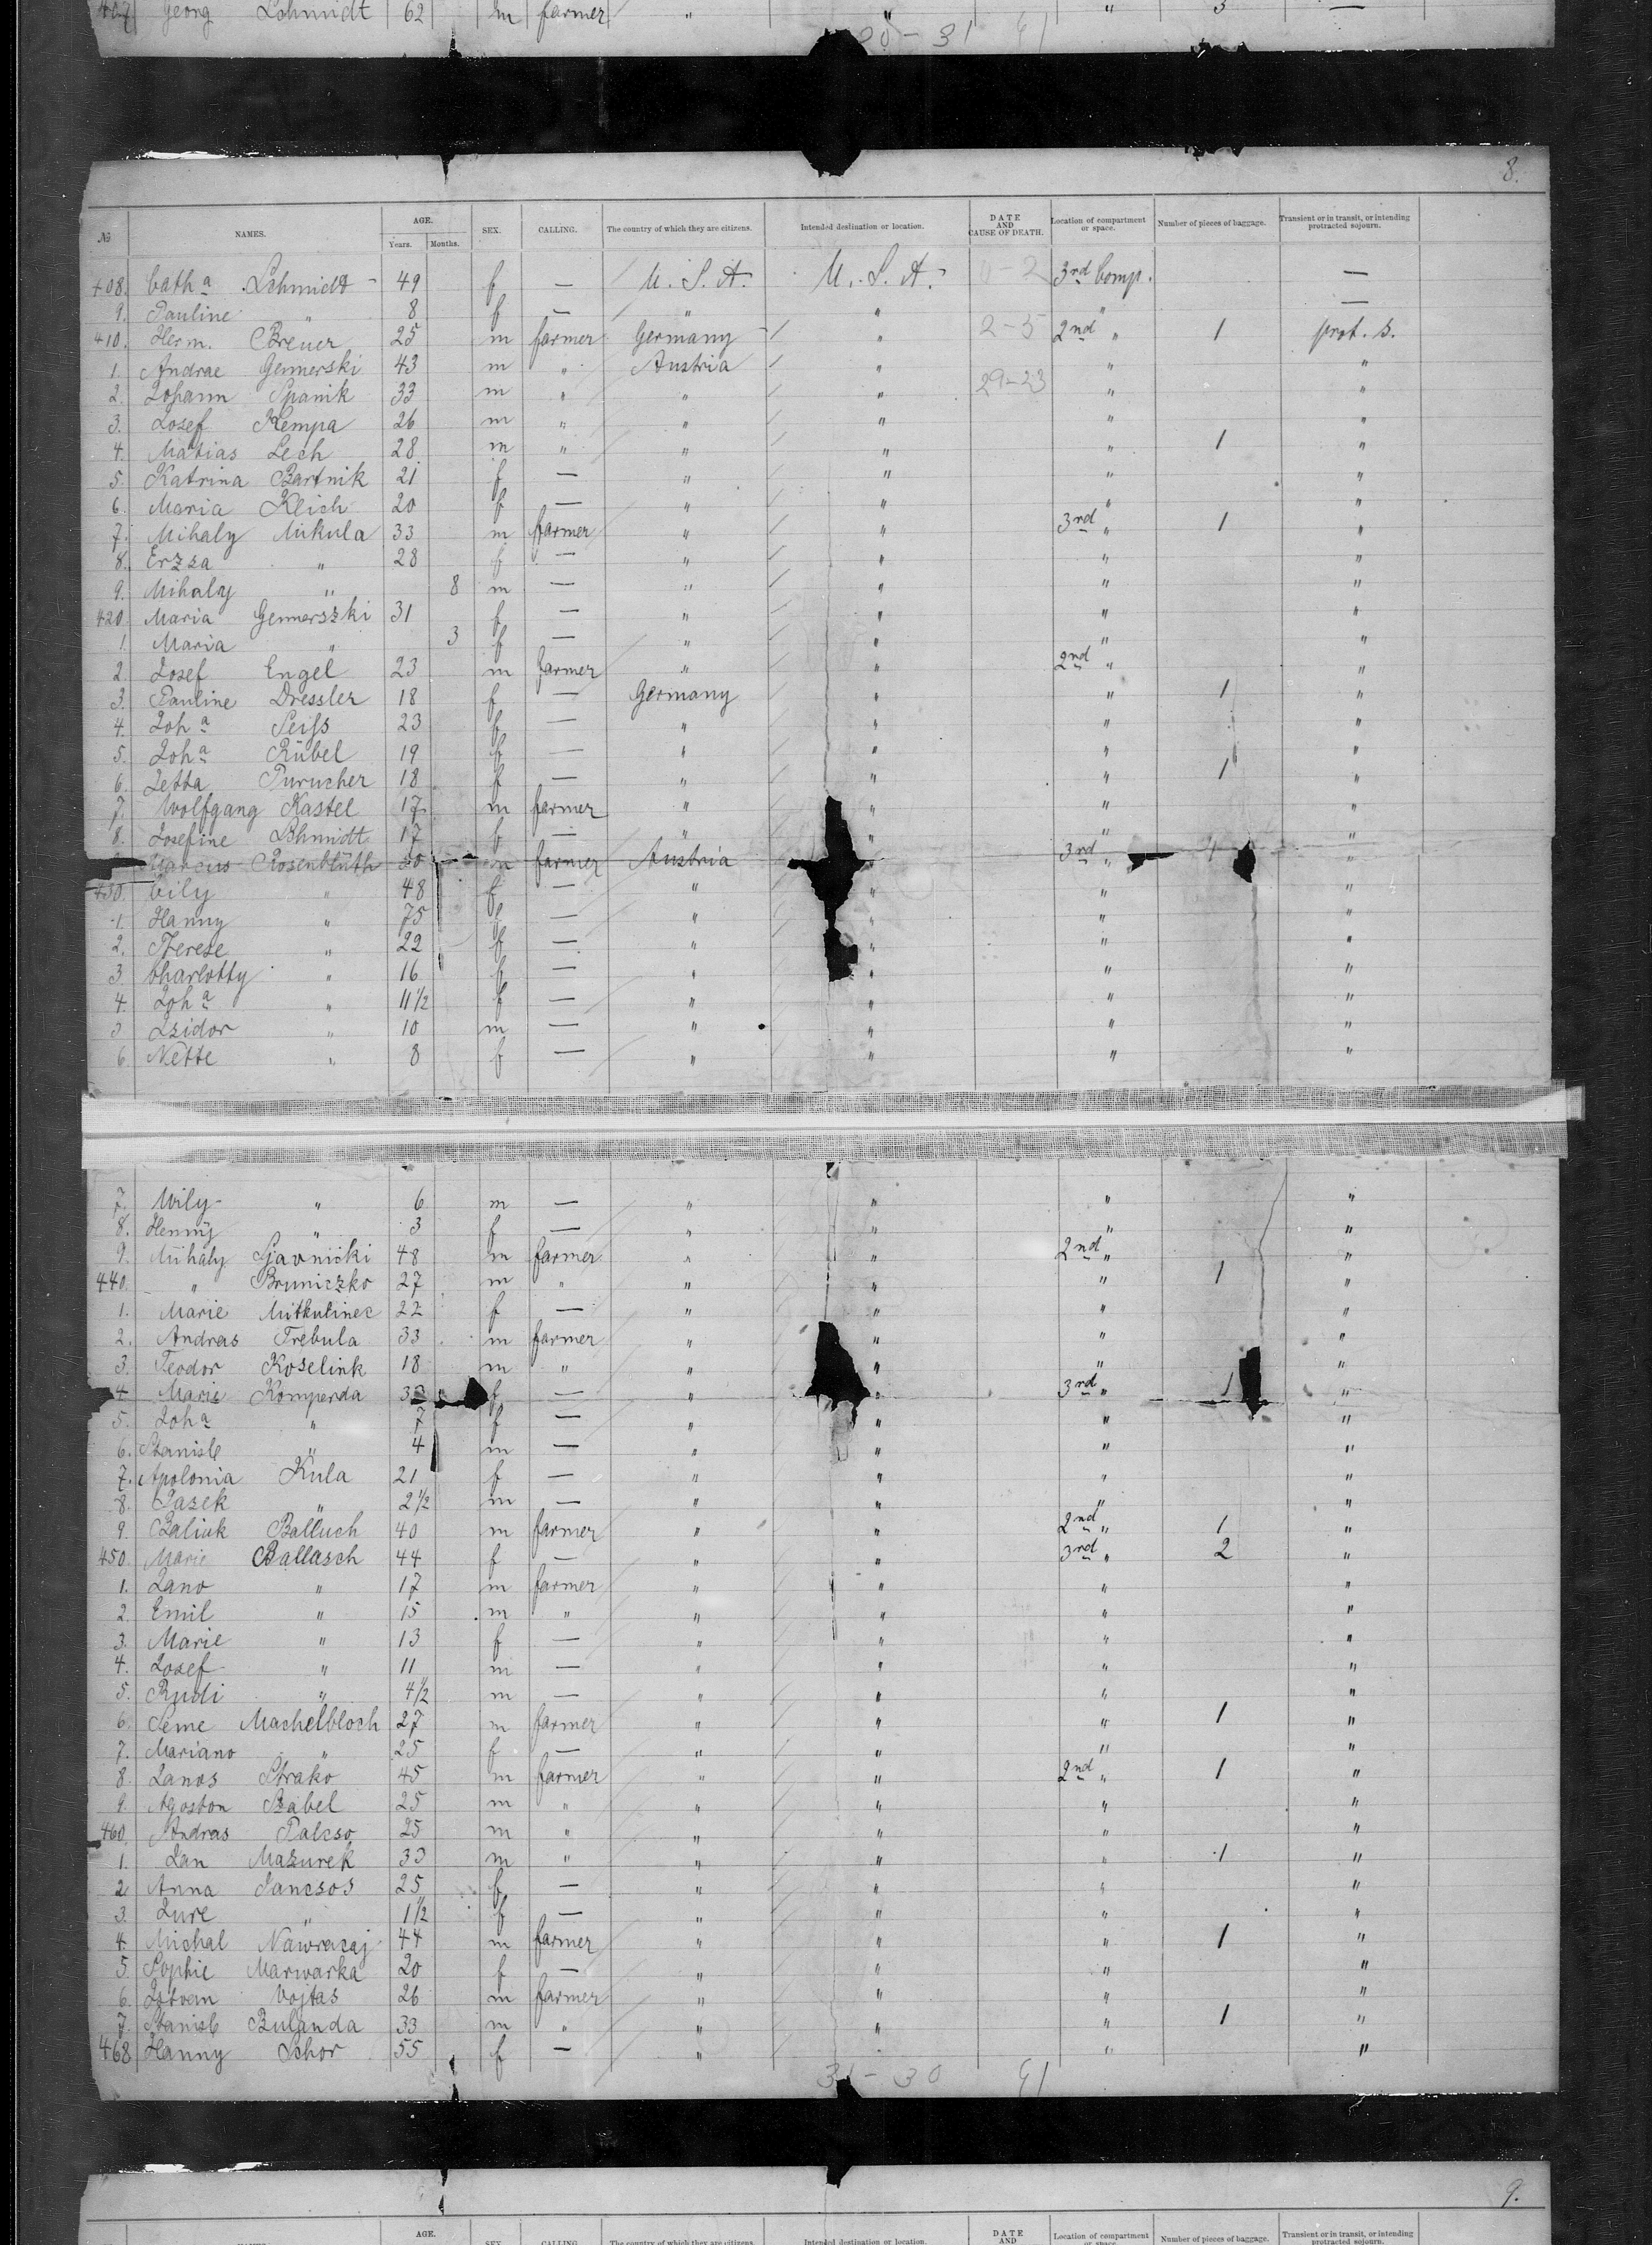 407 Georg Schmidt 62 m farmer " " " 3 —
31 61
8.
No NAMES. AGE. Years. Months. SEX. CALLING. The country of which they are citizens. Intended destination or location. DATE AND CAUSE OF DEATH. Location of compartment or space. Number of pieces of baggage. Transient or in transit, or intending protracted sojourn.
408. Cath a Schmidt 49 f — U. S. A. U. S. A. 3rd Comp. —
9. Pauline " 8 f — " " " —
410. Herm. Breuer 25 m farmer Germany " 2-5 2nd " 1 prot. s.
1. Andrae Gemerski 43 m " Austria " " "
2. Johann Spanik 33 m " " " 29-23 " "
3. Josef Kempa 26 m " " " " "
4. Matias Lech 28 m " " " " 1 "
5. Katrina Bartnik 21 f — " " " "
6. Maria Klich 20 f — " " " "
7. Mihaly Mikula 33 m farmer " " 3rd " 1 "
8. Erzsa " 28 f — " " " "
9. Mihaly " 8 m — " " " "
420. Maria Gemerszki 31 f — " " " "
1. Maria " 3 f — " " " "
2. Josef Engel 23 m farmer " " 2nd " "
3. Pauline Dressler 18 f — Germany " " 1 "
4. Joh a Seiss 23 f — " " " "
5. Joh a Rübel 19 f — " " " "
6. Jetta Purucher 18 f — " " " 1 "
7. Wolfgang Kastel 17 m farmer " " " "
8. Josefine Schmidt 17 f — " " " "
Marcus Rosenblüth 50 m farmer Austria " 3rd " 4 "
430. Cily " 48 f — " " " "
1. Hanny " 75 f — " " " "
2. Therese " 22 f — " " " "
3. Charlotty " 16 f — " " " "
4. Joh a " 11 1/2 f — " " " "
5 Izidor " 10 m — " " " "
6. Nette " 8 f — " " " "
7. Wily " 6 m — " " " "
8. Henny " 3 f — " " " "
9. Mihaly Gavnicki 48 m farmer " " 2nd " "
440. " Bruniczko 27 m " " " " 1 "
1. Marie Mitkulinec 22 f — " " " "
2. Andras Trebula 33 m farmer " " " "
3. Teodor Koselink 18 m " " " " "
4 Marie Komperda 32 f — " " 3rd " 1 "
5. Joh a " 7 f — " " " "
6. Stanisl " 4 m — " " " "
7. Apolonia Kula 21 f — " " " "
8. Pazek " 2 1/2 m — " " " "
9. Baliuk Balluch 40 m farmer " " 2nd " 1 "
450. Marie Ballasch 44 f — " " 3rd " 2 "
1. Jano " 17 m farmer " " " "
2. Emil " 15 m " " " " "
3. Marie " 13 f — " " " "
4. Josef " 11 m — " " " "
5. Rudi " 4 1/2 m — " " " "
6. Seme Machelbloch 27 m farmer " " " 1 "
7. Mariano " 25 f — " " " "
8. Janos Strako 45 m farmer " " 2nd " 1 "
9. Agoston Szabel 25 m " " " " "
460. Andras Palcso 25 m " " " " "
1. Jan Mazurek 33 m " " " " 1 "
2. Anna Jancsos 25 f — " " " "
3. Jure " 1 1/2 f — " " " "
4. Michal Nawracaj 44 m farmer " " " 1 "
5. Sophie Marwarka 20 f — " " " "
6. Istvan Vojtas 26 m farmer " " " "
7. Stanisl Bulanda 33 m " " " " 1 "
468 Hanny Schor 55 f — " " " "
31-30 61
9.
AGE. SEX. CALLING. The country of which they are citizens. Intended destination or location. DATE AND Location of compartment or space. Number of pieces of baggage. Transient or in transit, or intending protracted sojourn.